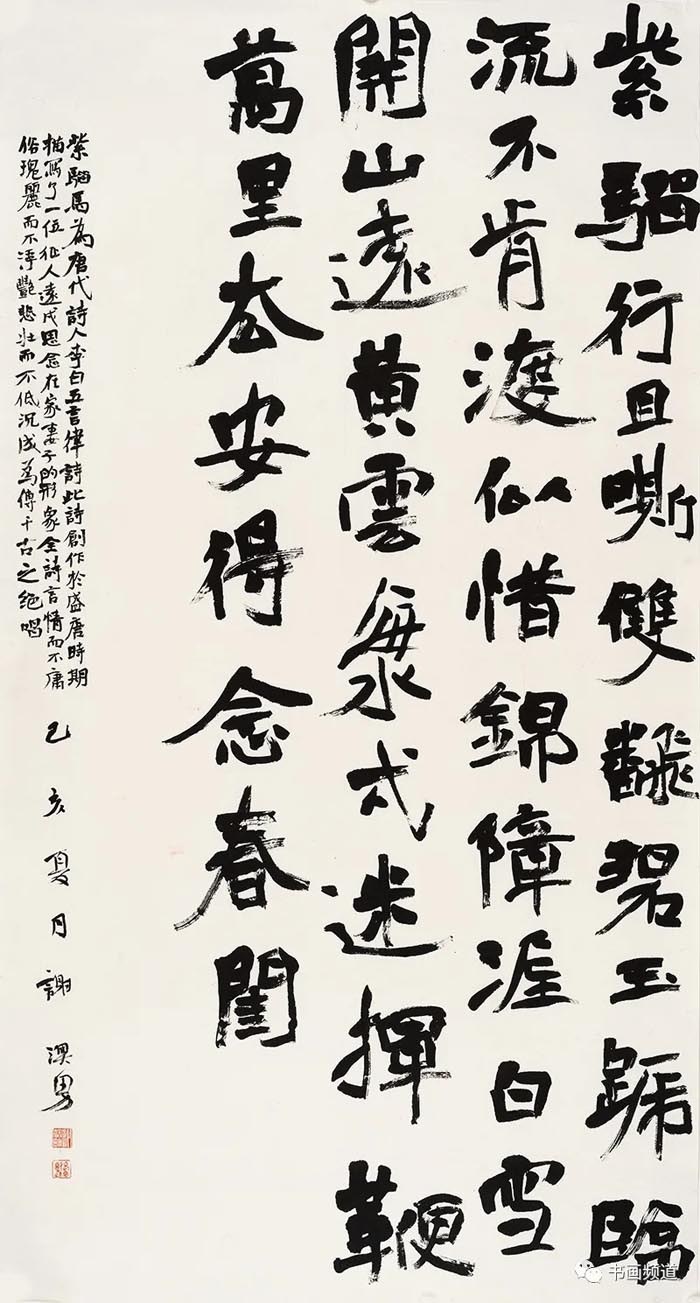 紫騮行且嘶雙翻碧玉蹄臨
流不肯渡似惜錦障泥白雪
開山遠黃雲海戍迷揮鞭
萬里去安得念春閨
紫騮馬為唐代詩人李白五言律詩此詩創作於盛唐時期
描寫了一位征人遠戍思念在家妻子的形象全詩言情而不庸
俗瑰麗而不浮艷悲壯而不低沉成為傳千古之絕唱 己亥夏月謝澳
书画频道